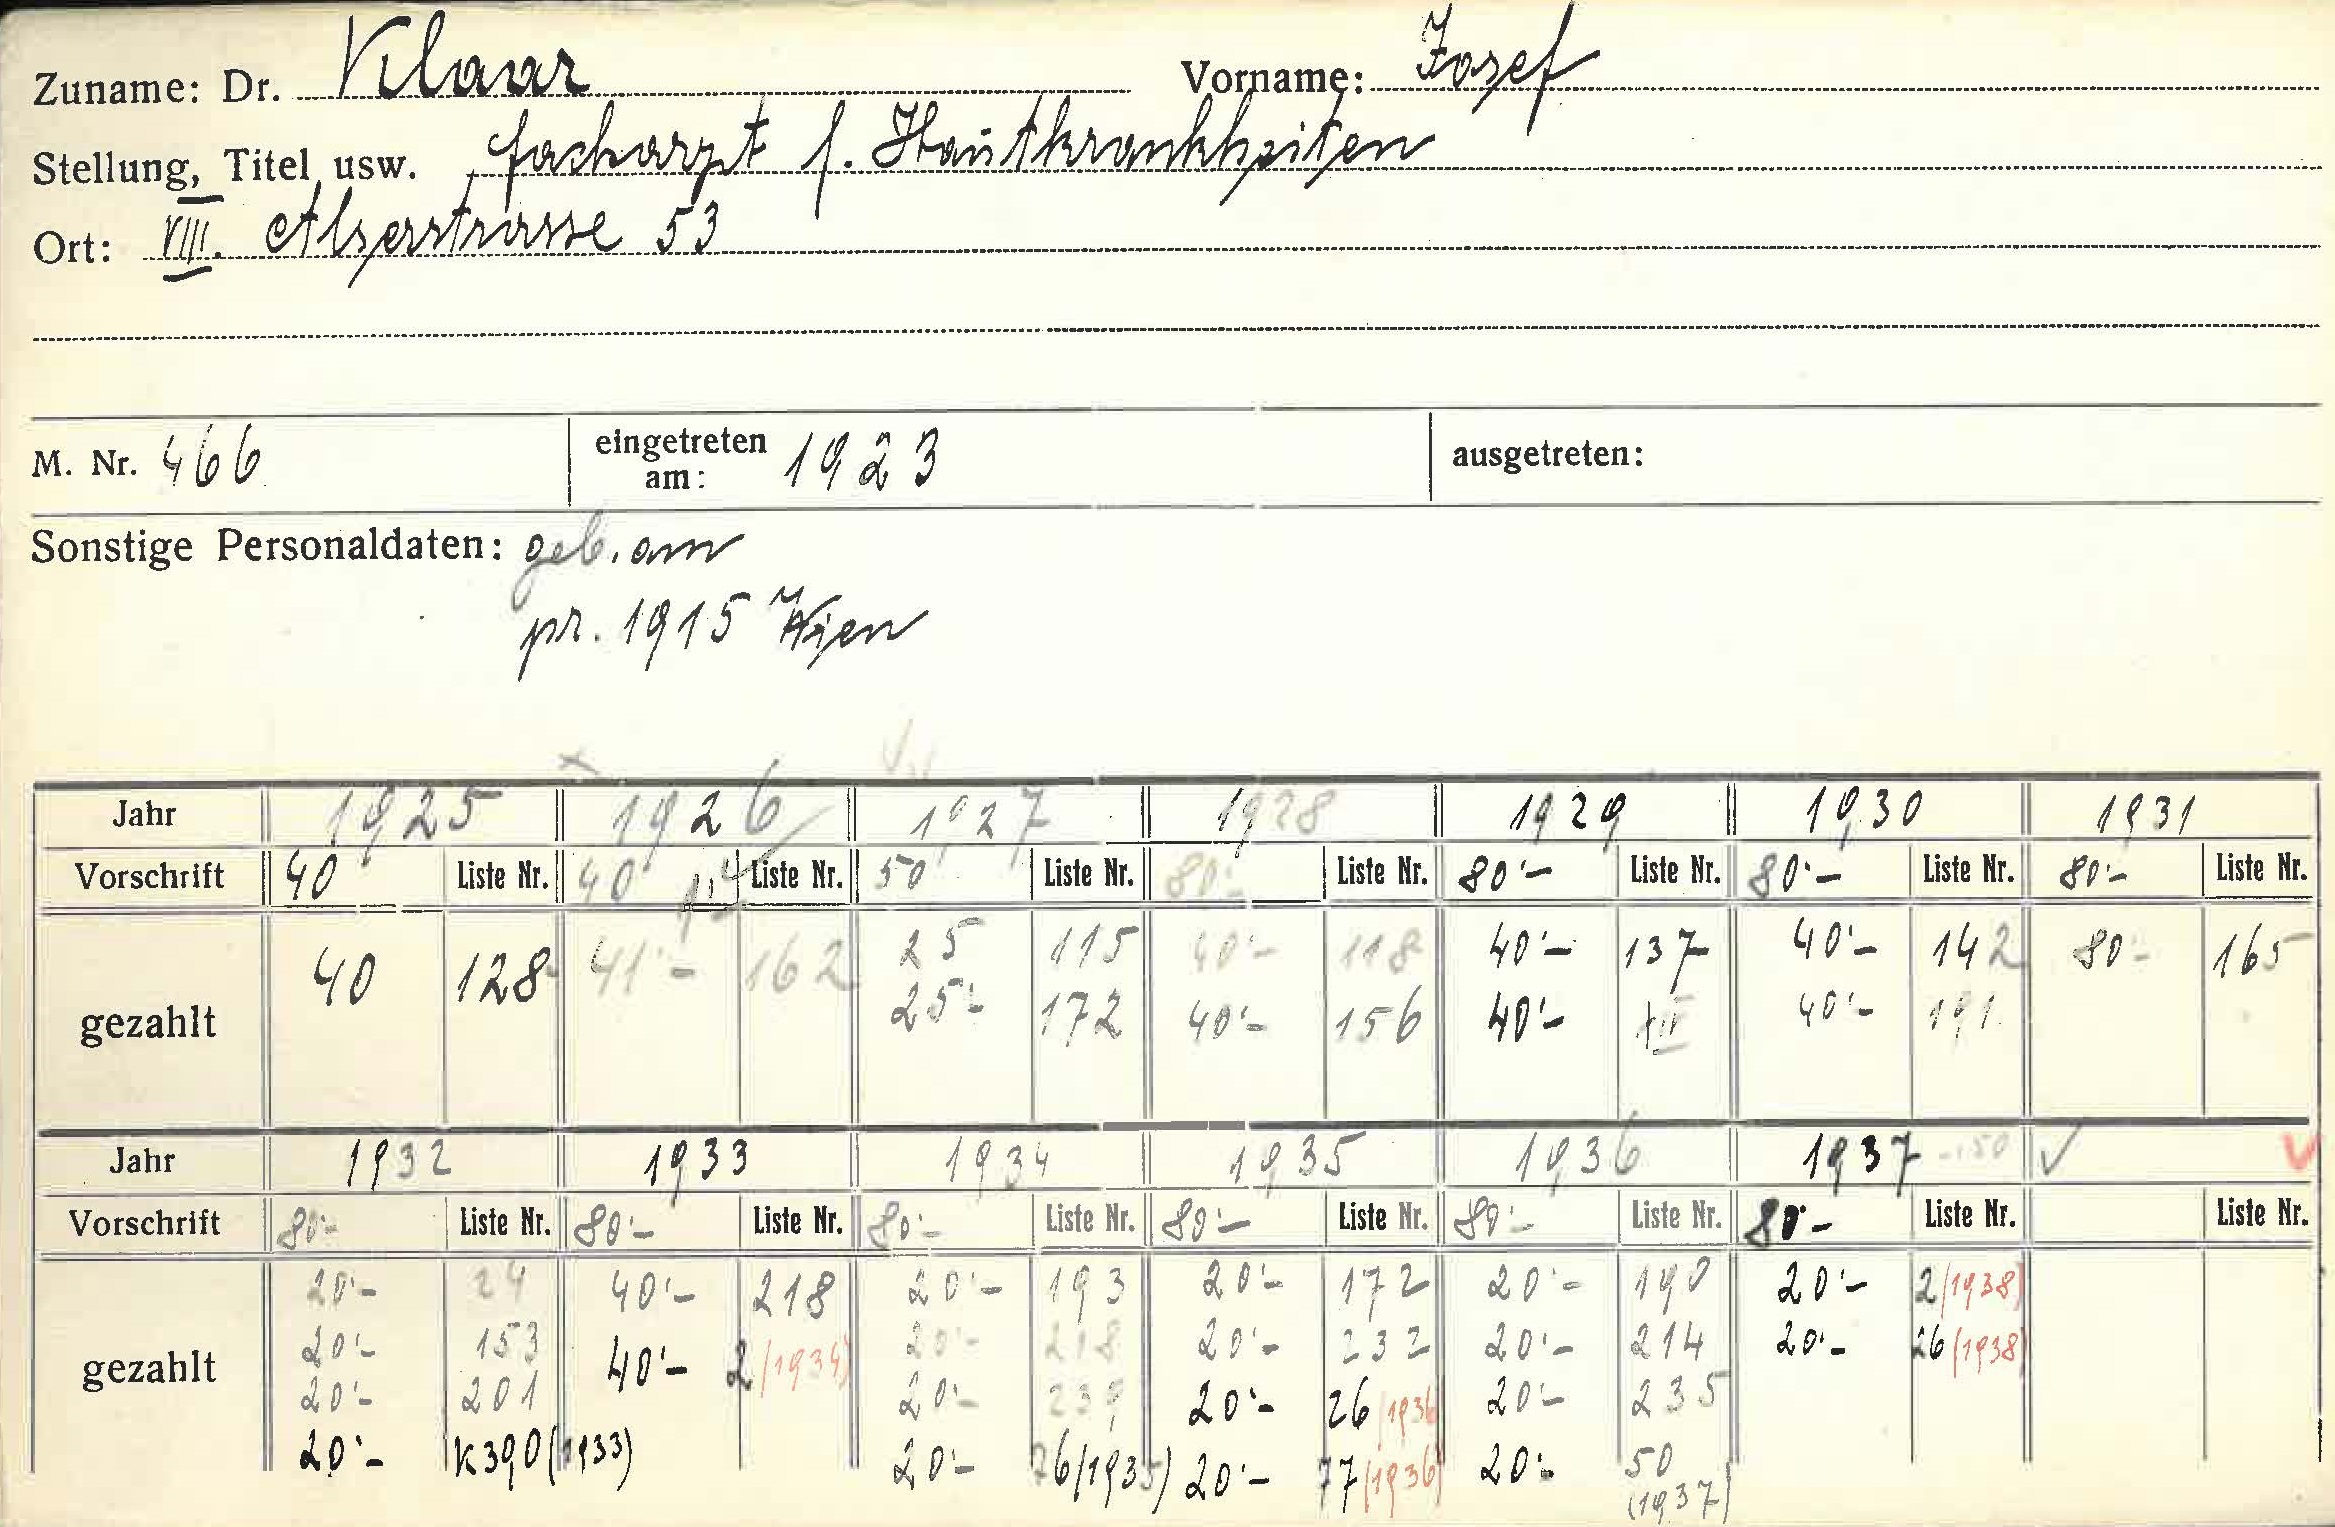 Zuname: Dr. Klaar Vorname: Josef
Stellung, Titel usw. Facharzt f. Hautkrankheiten
Ort: VIII. Alserstrasse 53
M. Nr. 466 eingetreten am: 1923 ausgetreten:
Sonstige Personaldaten: geb. am
pr. 1915 Wien
Jahr 1925 1926 1927 1928 1929 1930 1931
Vorschrift 40 Liste Nr. 40 Liste Nr. 50 Liste Nr. 80·- Liste Nr. 80·- Liste Nr. 80·- Liste Nr. 80·- Liste Nr.
gezahlt
40 128 41·- 162 25 115 40·- 118 40·- 137 40·- 142 80·- 165
25·- 172 40·- 156 40·- 40·- 191
Jahr 1932 1933 1934 1935 1936 1937 -·50 ✓ ✓
Vorschrift 80·- Liste Nr. 80·- Liste Nr. 80·- Liste Nr. 80·- Liste Nr. 80·- Liste Nr. 80·- Liste Nr. Liste Nr.
gezahlt
20·- 24 40·- 218 20·- 193 20·- 172 20·- 190 20·- 2/1938)
20·- 153 40·- 2/1934) 20·- 218 20·- 232 20·- 214 20·- 26(1938)
20·- 201 20·- 239 20·- 26/1936 20·- 235
20·- K390(1933) 20·- 26/1935) 20·- 77(1936) 20·- 50
(1937)